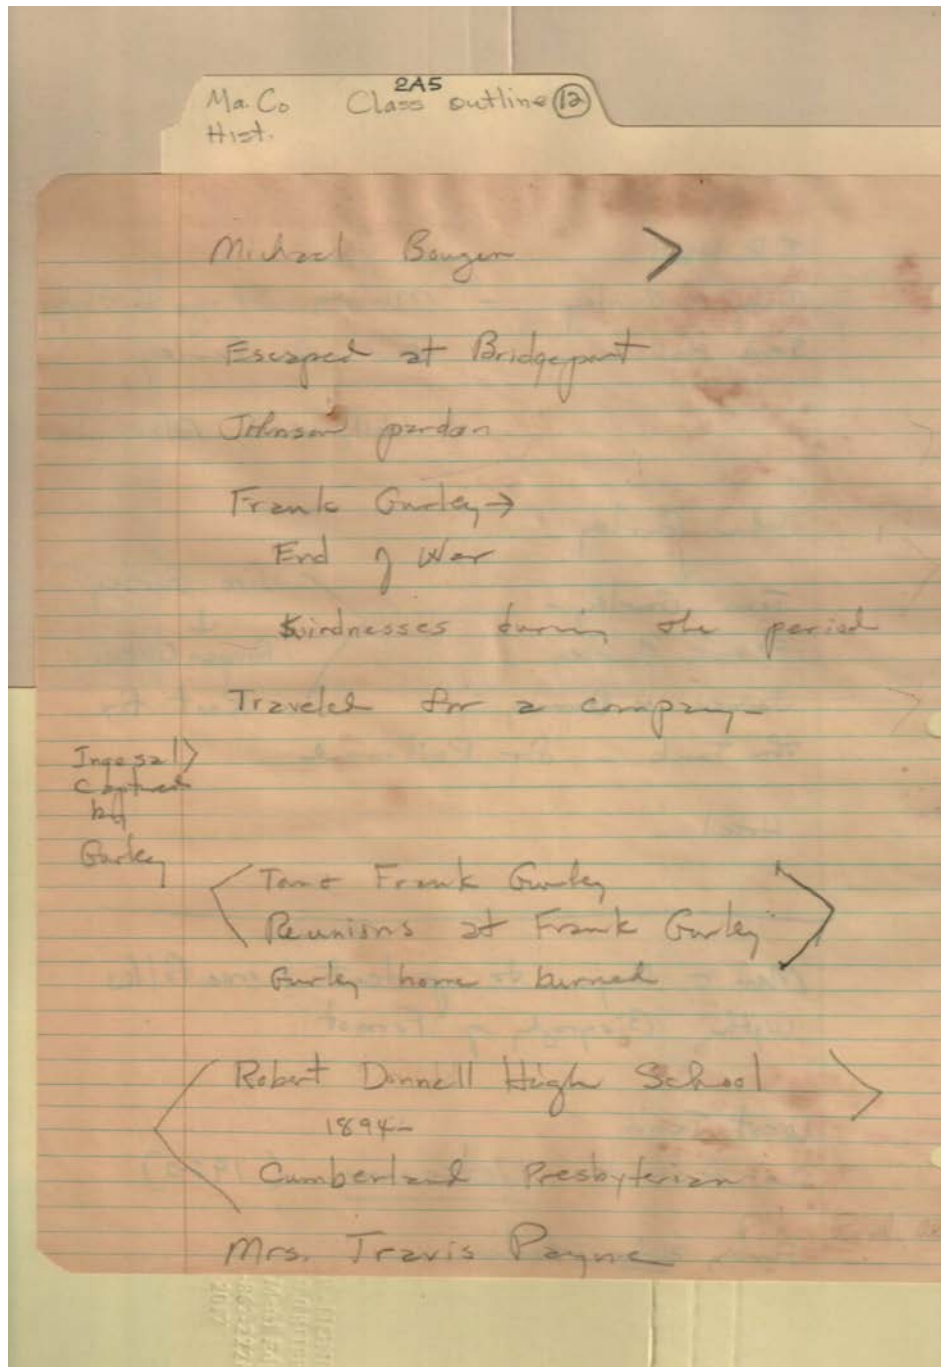 2A5
Ma. Co Class outline 12
Hist.
Michael Bougen
Escaped at Bridgeport
Johnson pardon
Frank Gurley →
End of War
Kindnesses during the period
Traveled for a company -
Captured
by
Gurley
Frank Gurley
Reunions at Frank Gurley
Gurley home burned
Robert Donnell High School
1894-
Cumberland Presbyterian
Mrs. Travis Payne